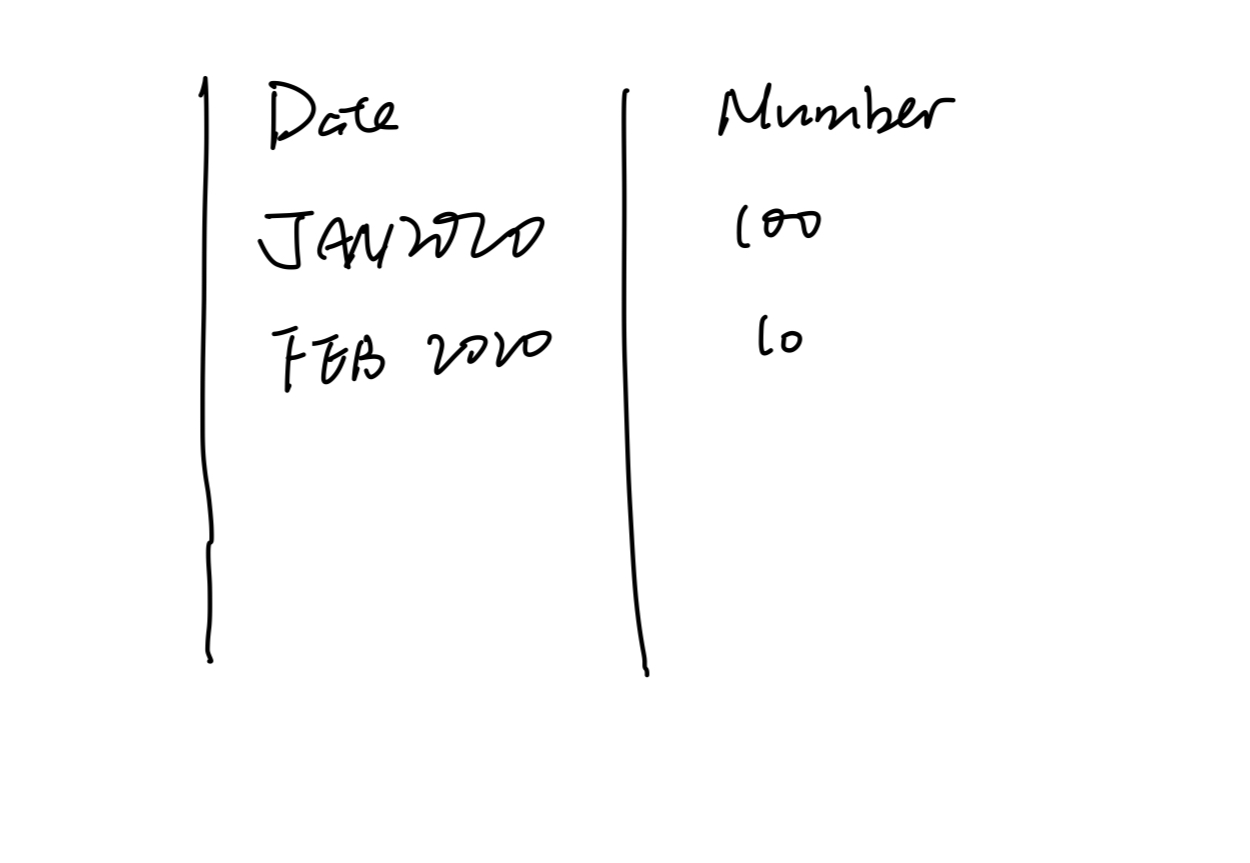 Date Number
JAN 2020 100
FEB 2020 10